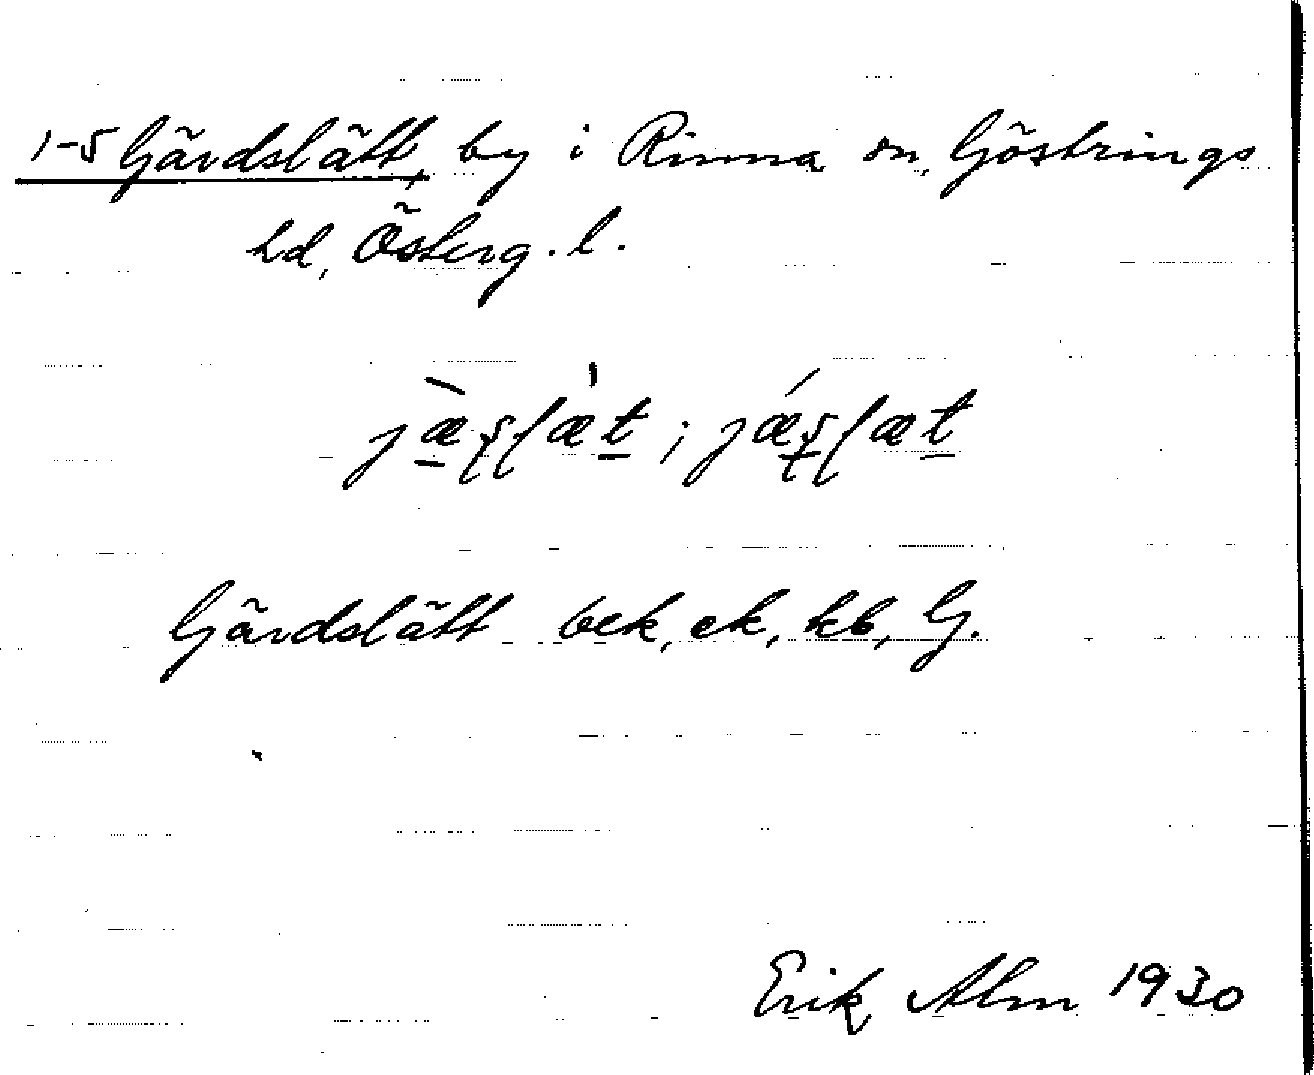 1-5 Gärdslätt, by i Rinna sn, Göstrings
hd, Österg. l.
jæ̀ʂʃæ̍t; jǽʂʃæt
Gärdslätt bek, ek, kb, G.
Erik Alm 1930